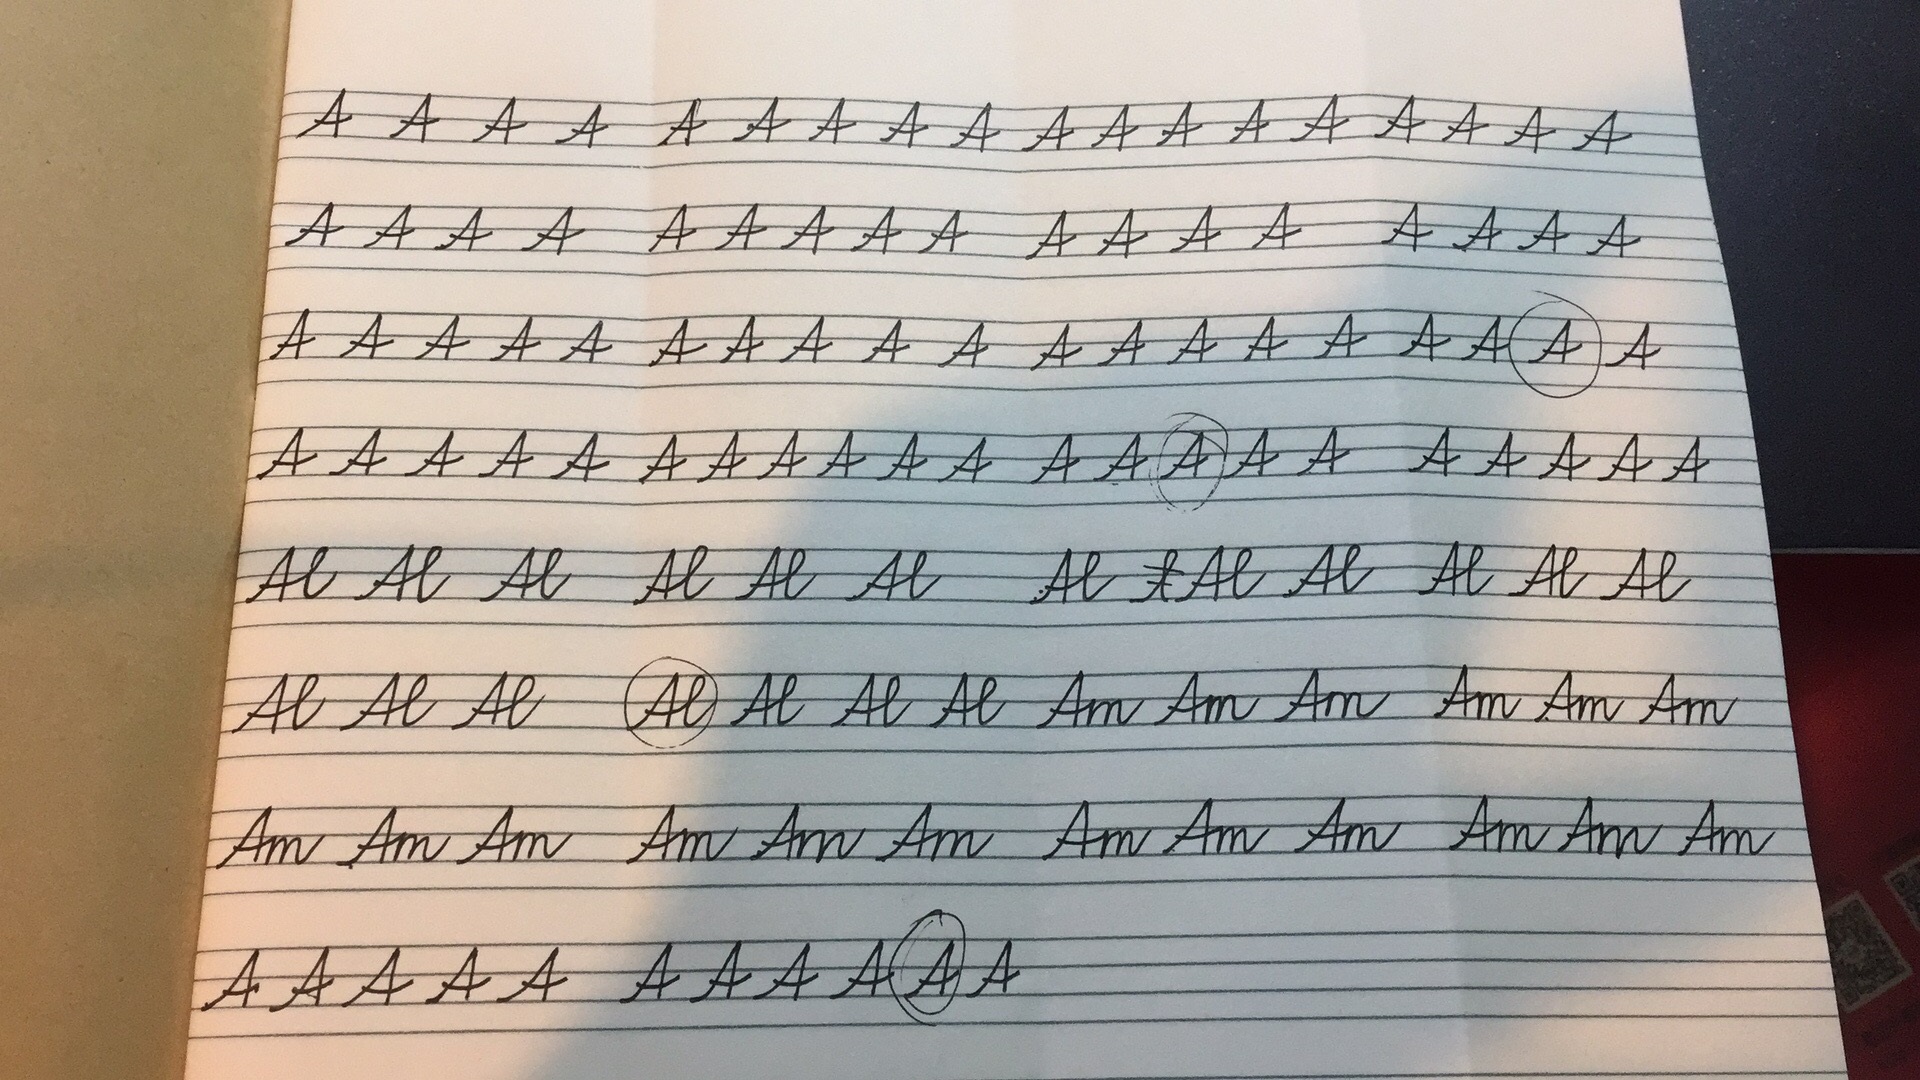 A A A A A A A A A A A A A A A A A A
A A A A A A A A A A A A A A A A A
A A A A A A A A A A A A A A A A A A A
A A A A A A A A A A A A A A A A A A A A A
Al Al Al Al Al Al Al Al Al Al Al Al
Al Al Al Al Al Al Al Am Am Am Am Am Am
Am Am Am Am Am Am Am Am Am Am Am Am
A A A A A A A A A A A